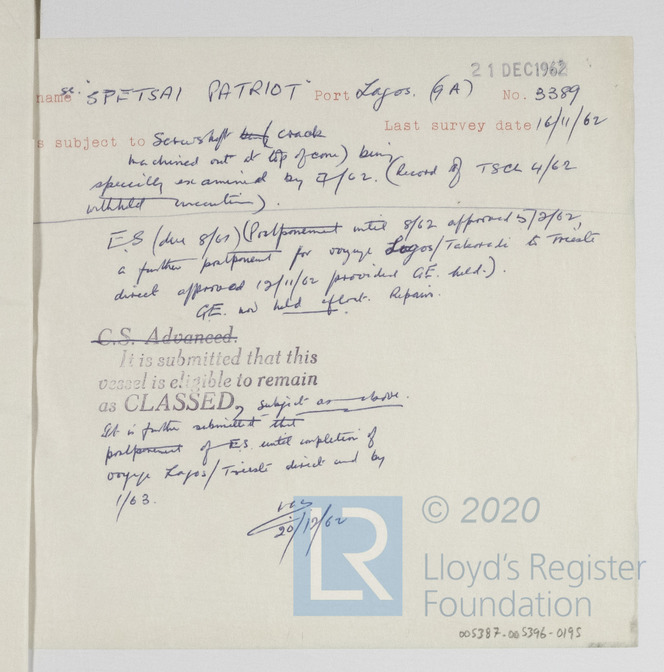 21 DEC 1962
name sc. "SPETSAI PATRIOT" Port Lagos. (GA) No. 3389
Last survey date 16/11/62
s subject to Screwshaft crack
machined out at top of cone) being
specially examined by 7/62. (Record of TSCL 4/62
withheld meantime).
ES (due 8/61) (Postponement until 8/62 approved 5/2/62,
a further postponement for voyage Lagos/Takoradi to Trieste
direct approved 12/11/62 provided GE. held.).
GE. now held afloat. Repairs.
C.S. Advanced.
It is submitted that this
vessel is eligible to remain
as CLASSED, subject as above.
It is further submitted that
postponement of ES until completion of
voyage Lagos/Trieste direct and by
1/63.
20/12/62
LR
© 2020
Lloyd's Register
Foundation
005387-005396-0195